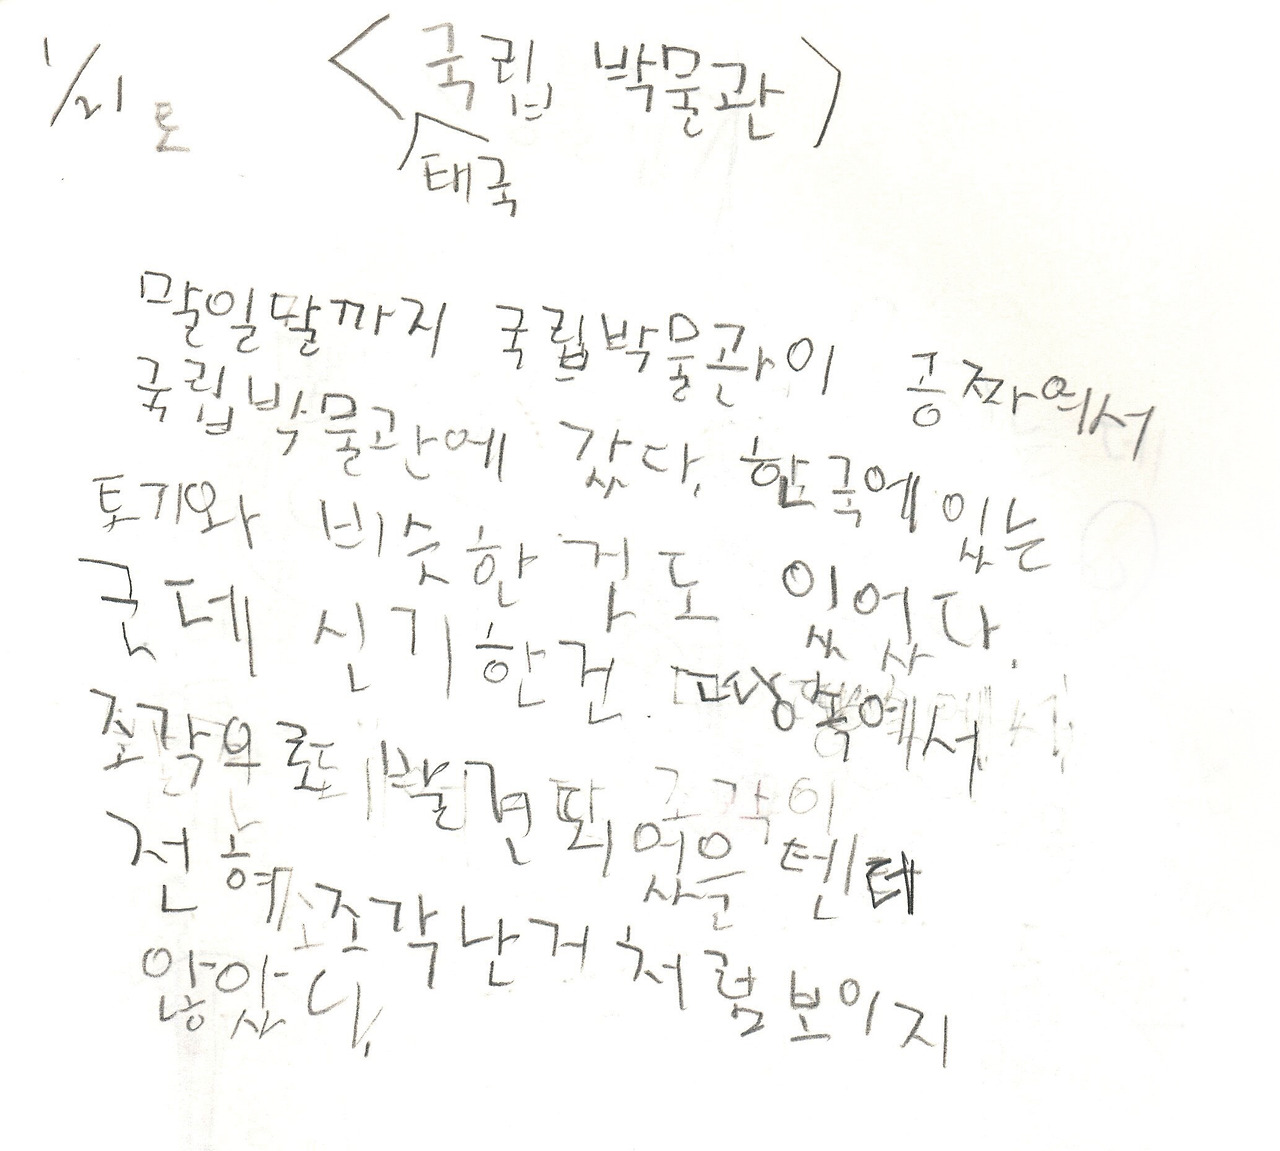 1/21 토 <국립 박물관>
태국
말일딸까지 국립박물관이 공짜여서
국립박물관에 갔다. 한국에 있는
토기와 비슷한 건도 있었다.
근데 신기한건 땅속에서
조각으로 발견돼었을텐테
전혀 조각난거처럼보이지
않았다.